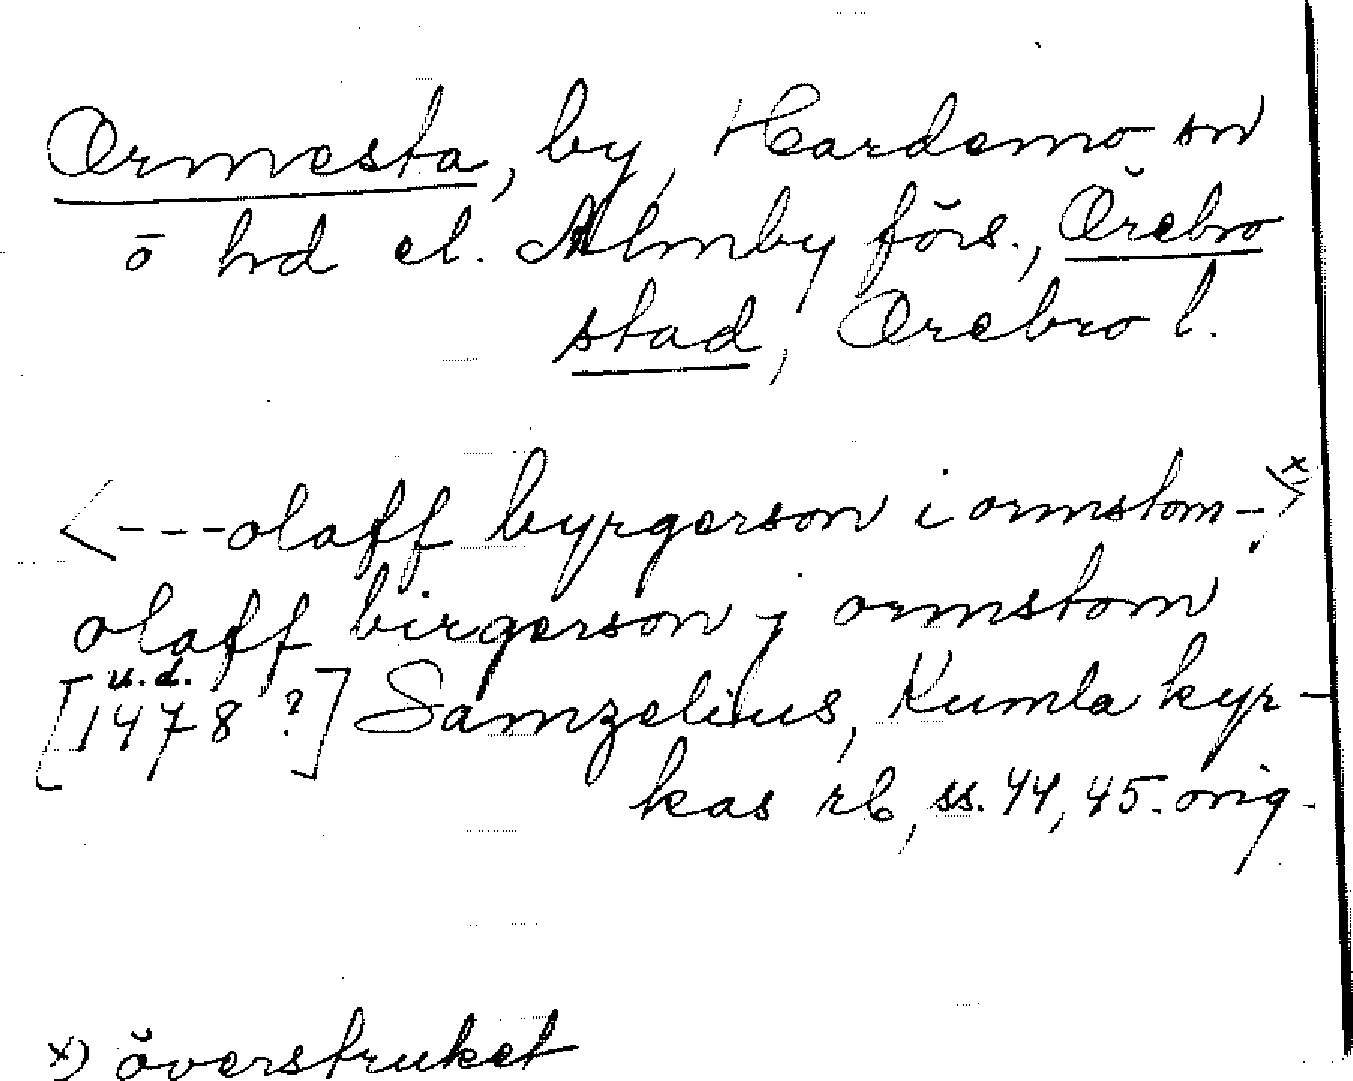 Ormesta, by, Hardemo sn
ö hd el. Almby förs., Örebro
stad, Örebro l.
<---olaff byrgerson i ormstom->x
olaff birgerson j ormstom
[u.d. 1478 ?] Samzelius, Kumla kyr-
kas rb, ss. 44, 45. orig.
x) överstruket